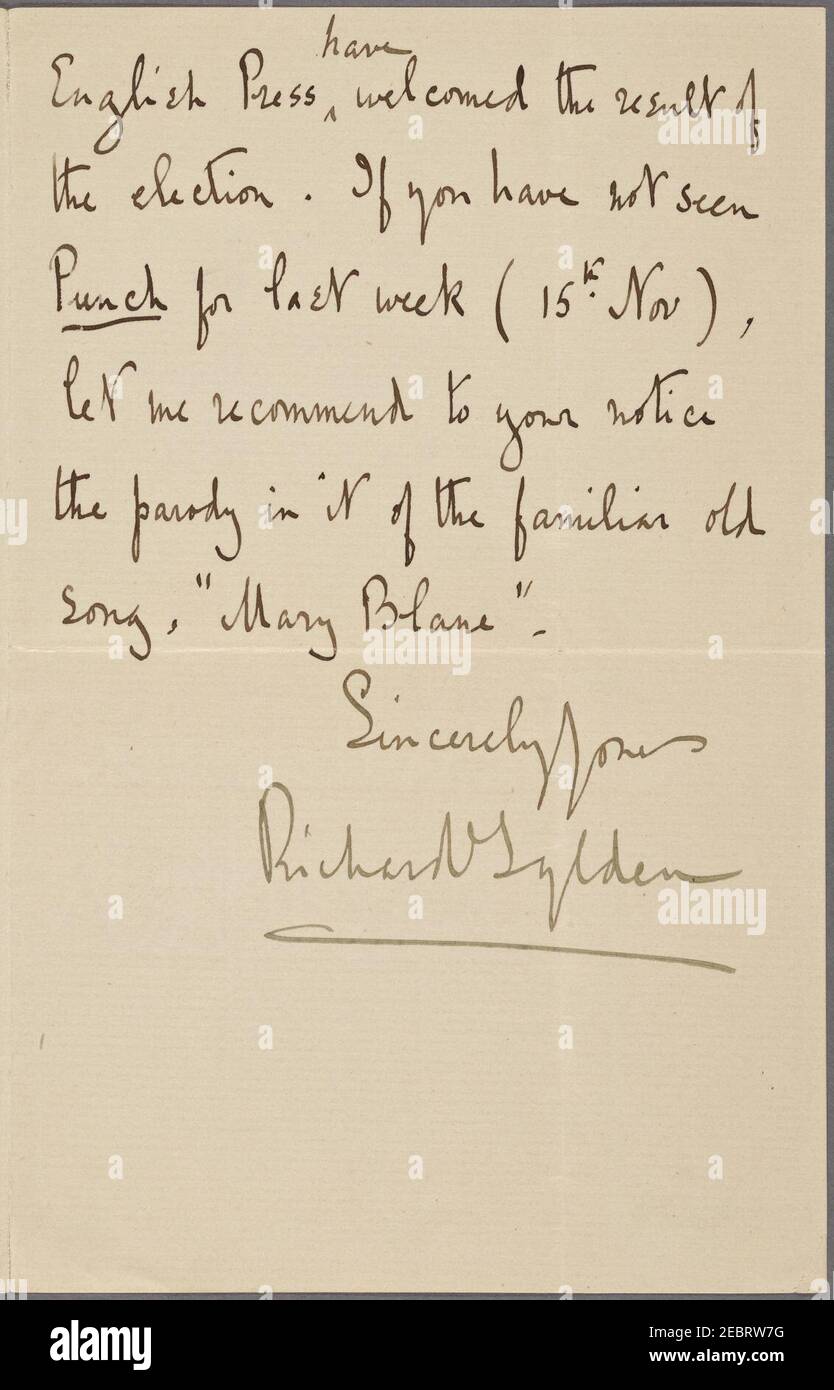 have
English Press ‸ welcomed the result of
the election. If you have not seen
Punch for last week (15th Nov),
let me recommend to your notice
the parody in it of the familiar old
song, "Mary Blane".
Sincerely yours
Richard Sylden
alamy
alamy
Image ID: 2EBRW7G
www.alamy.com